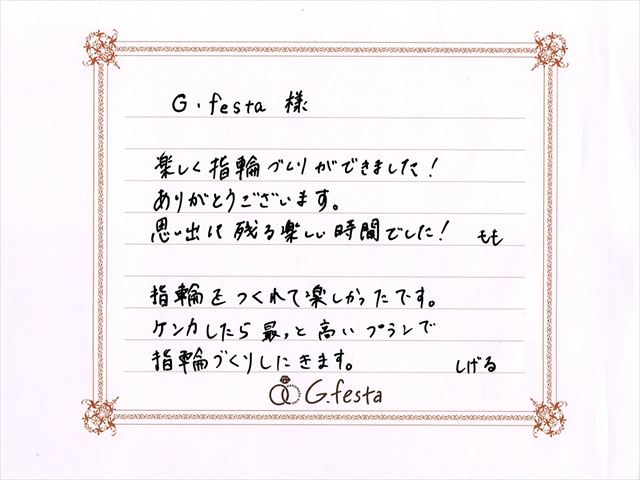 G.festa 様
楽しく指輪づくりができました!
ありがとうございます。
思い出に残る楽しい時間でした! もも
指輪をつくれて楽しかったです。
ケンカしたら最っと高いプランで
指輪づくりしにきます。 しげる
G.festa